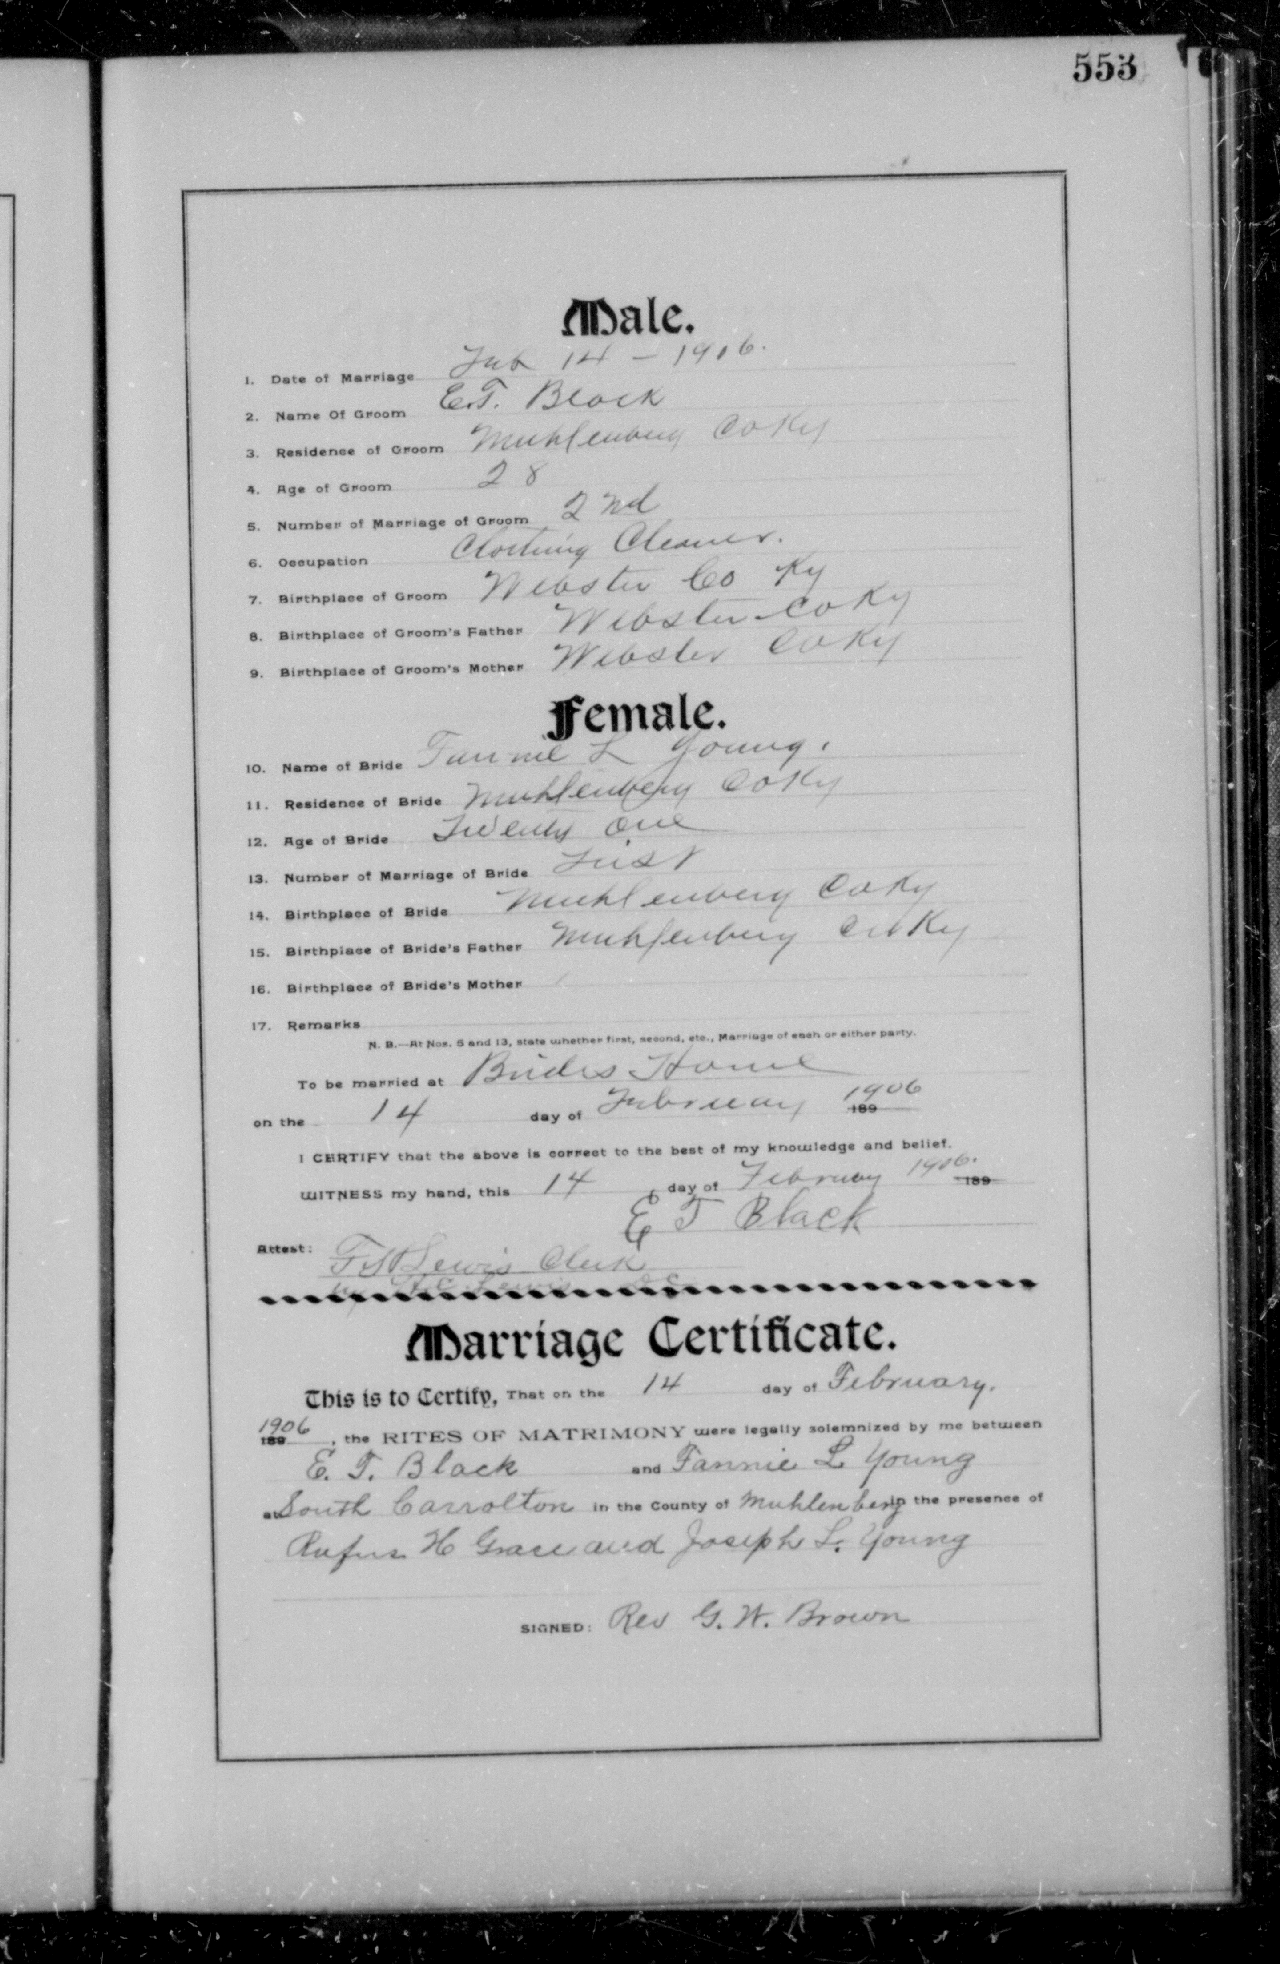 553
Male.
1. Date of Marriage Feb 14 - 1906.
2. Name Of Groom E.T. Black
3. Residence of Groom Muhlenberg Co Ky
4. Age of Groom 28
5. Number of Marriage of Groom 2nd
6. Occupation Clothing Cleaner.
7. Birthplace of Groom Webster Co Ky
8. Birthplace of Groom's Father Webster Co Ky
9. Birthplace of Groom's Mother Webster Co Ky
Female.
10. Name of Bride Fannie L Young.
11. Residence of Bride Muhlenberg Co Ky
12. Age of Bride Twenty One
13. Number of Marriage of Bride First
14. Birthplace of Bride Muhlenberg Co Ky
15. Birthplace of Bride's Father Muhlenberg Co Ky
16. Birthplace of Bride's Mother
17. Remarks
N. B.—At Nos. 5 and 13, state whether first, second, etc., Marriage of each or either party.
To be married at Brides Home
on the 14 day of February 1906 189
I CERTIFY that the above is correct to the best of my knowledge and belief.
WITNESS my hand, this 14 day of February 1906. 189
E T Black
Attest: Lewis Clerk
by Lewis D.C.
Marriage Certificate.
This is to Certify, That on the 14 day of February.
1906 189 , the RITES OF MATRIMONY were legally solemnized by me between
E. T. Black and Fannie L Young
at South Carrolton in the County of Muhlenberg in the presence of
Rufus H Grace and Joseph L. Young
SIGNED: Rev G. W. Brown